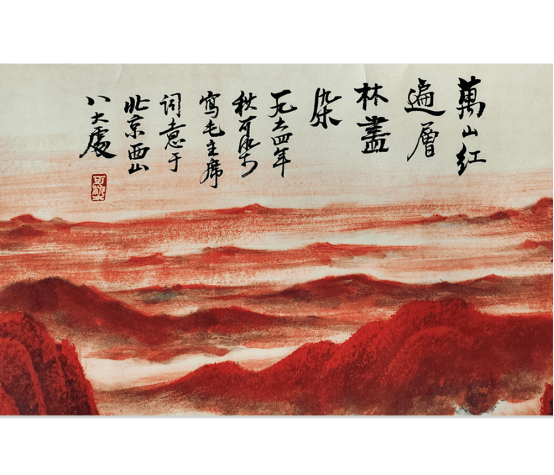 萬山红
遍層
林盡
染
一九六四年
秋可染
寫毛主席
词意于
北京西山
八大處